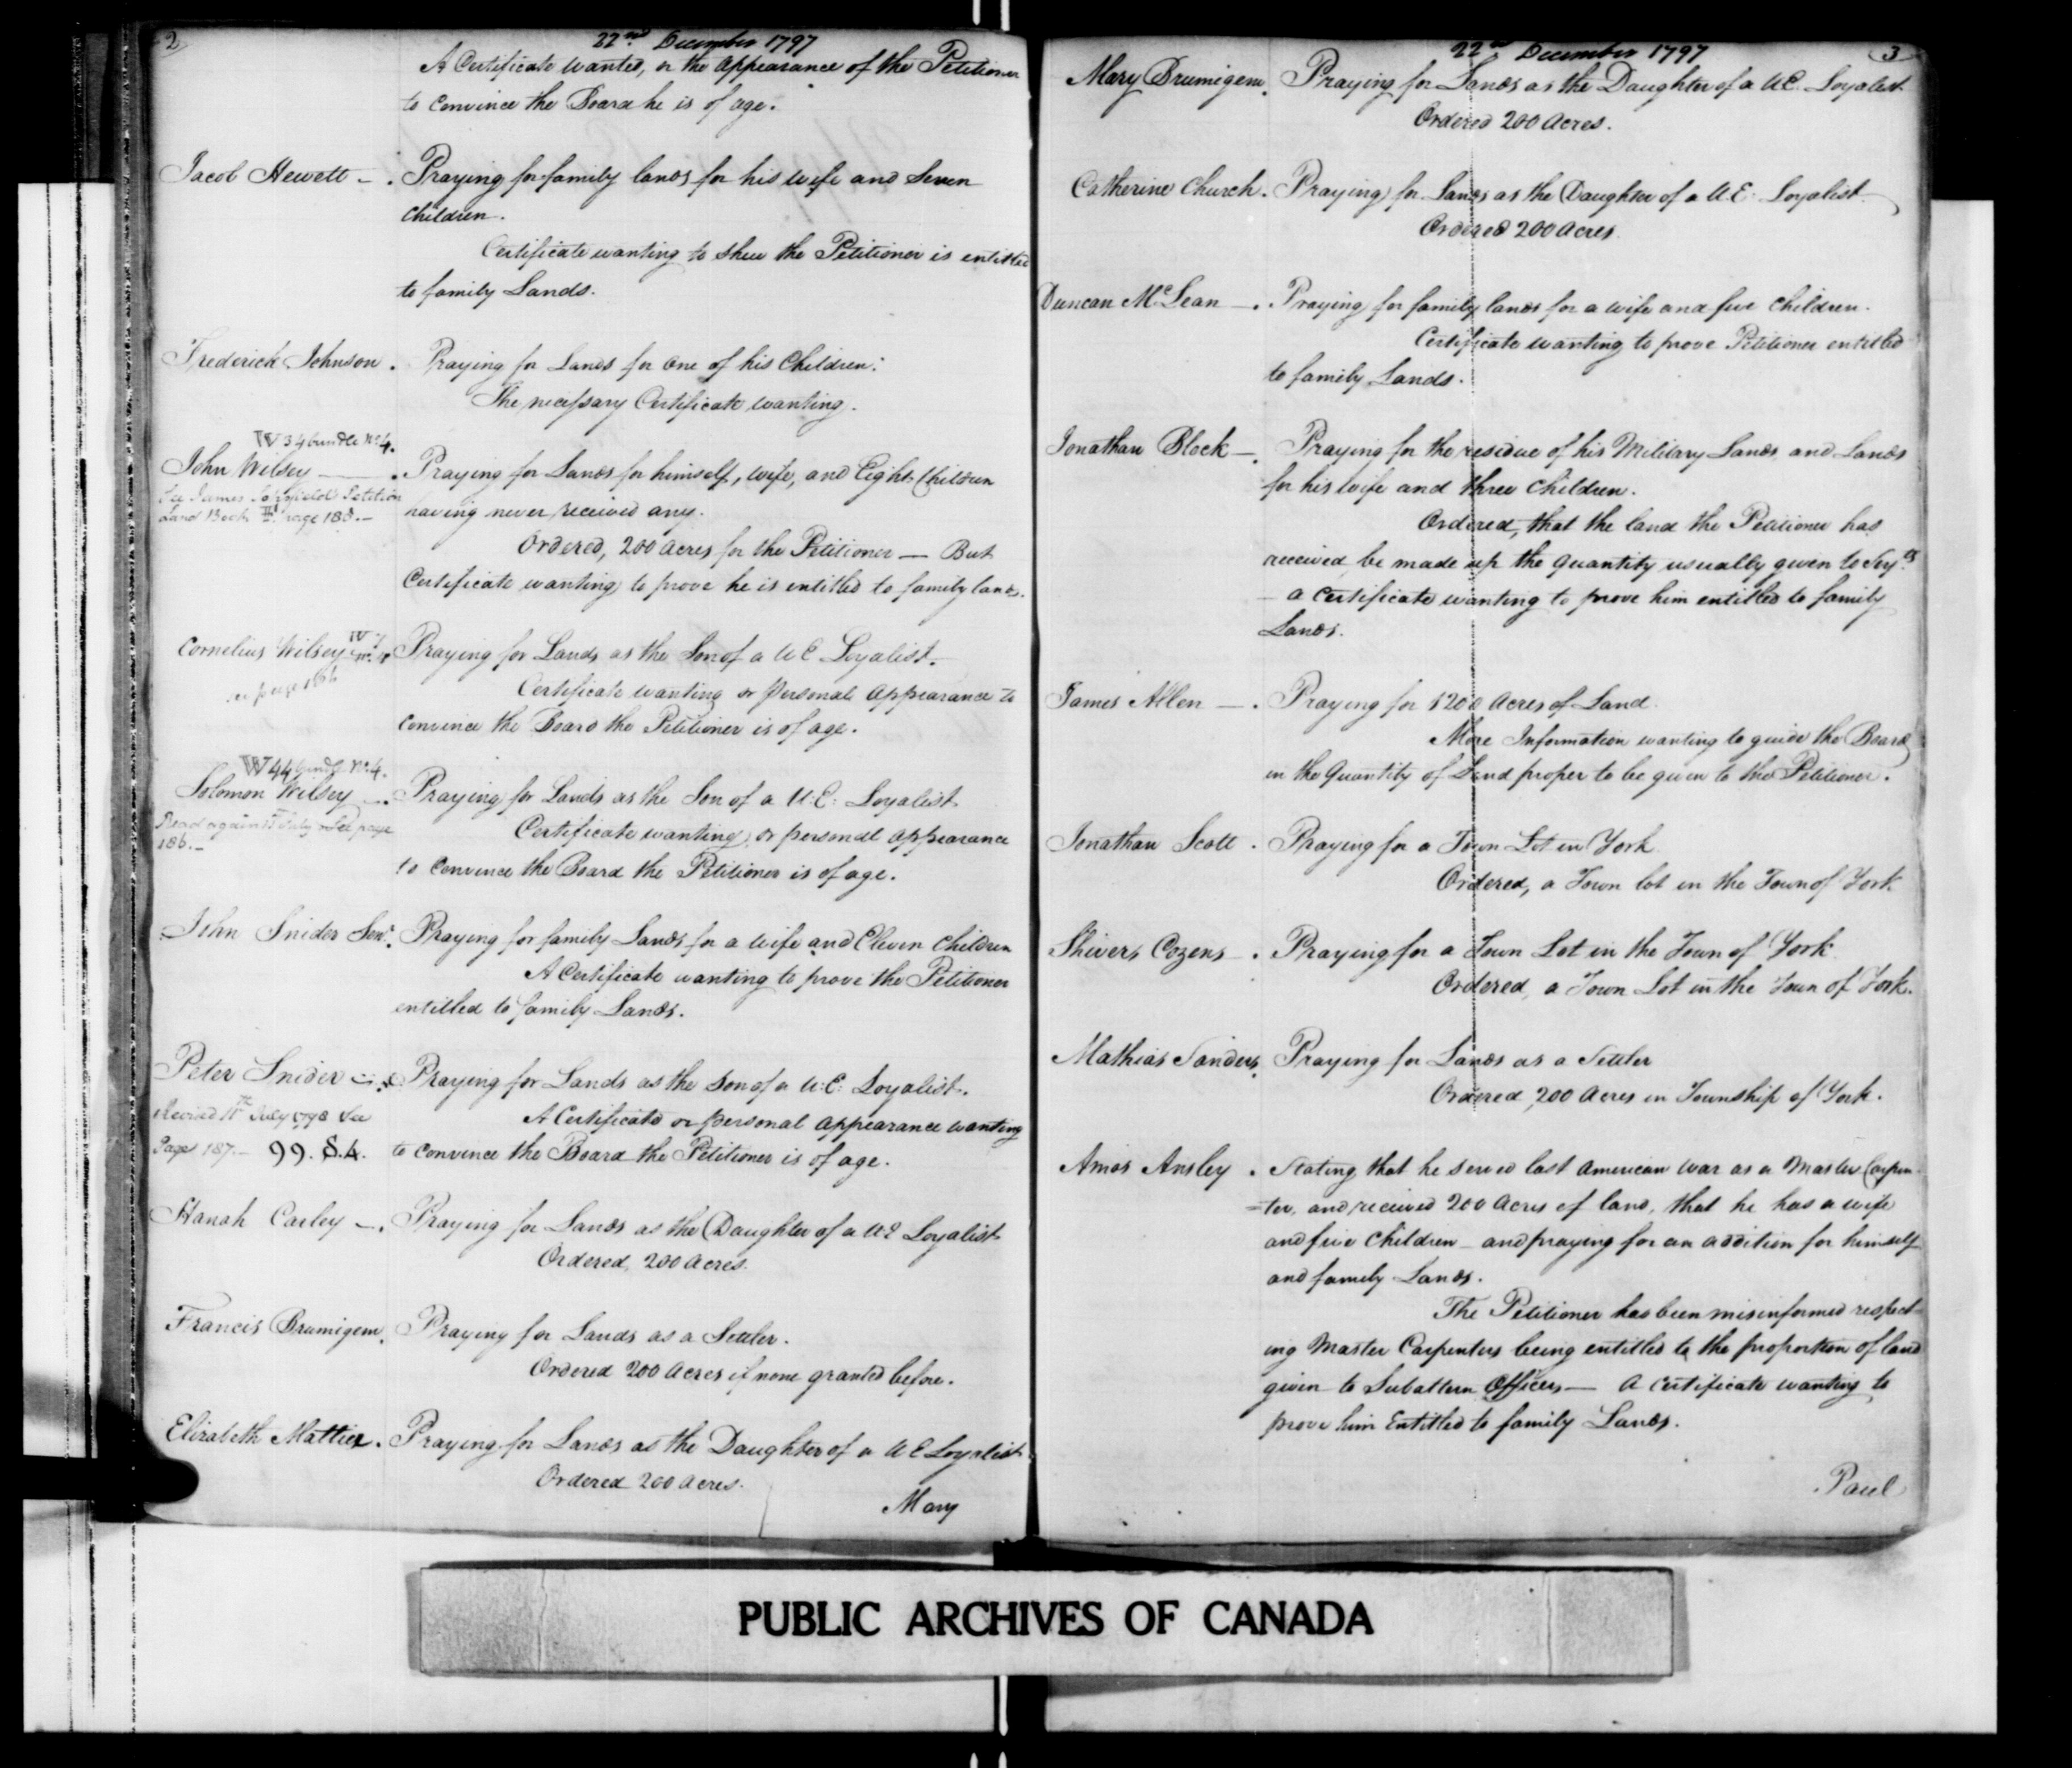 2
22nd December 1797
A Certificate wanted, or the appearance of the Petitioner
to convince the Board he is of age.
Jacob Hewett - . Praying for family lands for his wife and Seven
Children.
Certificate wanting to shew the Petitioner is entitled
to family Lands.
Frederick Johnson . Praying for Lands for one of his Children.
The necessary Certificate wanting.
W 34 bundle No 4.
John Wilsey — . Praying for Lands for himself, wife, and Eight Children
See James Petition
Land Book page 188.-
having never received any.
Ordered, 200 Acres for the Petitioner — But
Certificate wanting to prove he is entitled to family lands.
Cornelius Wilsey Praying for Lands as the Son of a U E Loyalist.
page 186
Certificate wanting or personal appearance to
convince the Board the Petitioner is of age.
W 44 bundle No 4.
Solomon Wilsey - . Praying for Lands as the Son of a U.E: Loyalist
Read again July See page
186.-
Certificate wanting, or personal appearance
to convince the Board the Petitioner is of age.
John Snider Senr. Praying for family Lands for a wife and Eleven Children
A Certificate wanting to prove the Petitioner
entitled to family Lands.
Peter Snider Praying for Lands as the son of a U:E: Loyalist.
Revised 11th July 1798 See
Page 187.- 99. S.4.
A Certificate or personal appearance wanting
to convince the Board the Petitioner is of age.
Hanah Carley - . Praying for Lands as the Daughter of a U.E Loyalist
Ordered, 200 Acres.
Francis Brumigem. Praying for Lands as a Settler.
Ordered 200 Acres if none granted before.
Elizabeth Mattice . Praying for Lands as the Daughter of a U E Loyalist
Ordered 200 Acres.
Mary
22nd December 1797
3
Mary Brumigem. Praying for Lands as the Daughter of a U.E. Loyalist
Ordered 200 Acres.
Catherine Church . Praying for Lands as the Daughter of a U.E. Loyalist
Ordered 200 Acres.
Duncan McLean - . Praying for family lands for a wife and five Children.
Certificate wanting to prove Petitioner entitled
to family Lands.
Jonathan Block - . Praying for the residue of his Military Lands, and Lands
for his wife and three Children.
Ordered, that the land the Petitioner has
received, be made up the quantity usually given to Serjts
- a Certificate wanting to prove him entitled to family
Lands.
James Allen - . Praying for 1200 Acres of Land.
More Information wanting to guide the Board
in the quantity of Land proper to be given to the Petitioner.
Jonathan Scott . Praying for a Town Lot in York
Ordered, a Town lot in the Town of York
Shivers Cozens . Praying for a Town Lot in the Town of York
Ordered, a Town Lot in the Town of York.
Mathias Sanders. Praying for Lands as a Settler
Ordered, 200 Acres in Township of York.
Amos Ansley . Stating that he served last American War as a Master Carpen-
=ter, and received 200 Acres of land, that he has a wife
and five Children - and praying for an addition for himself
and family Lands.
The Petitioner has been misinformed respect=
ing Master Carpenters being entitled to the proportion of land
given to Subaltern Officers — A certificate wanting to
prove him Entitled to family Lands.
Paul
PUBLIC ARCHIVES OF CANADA